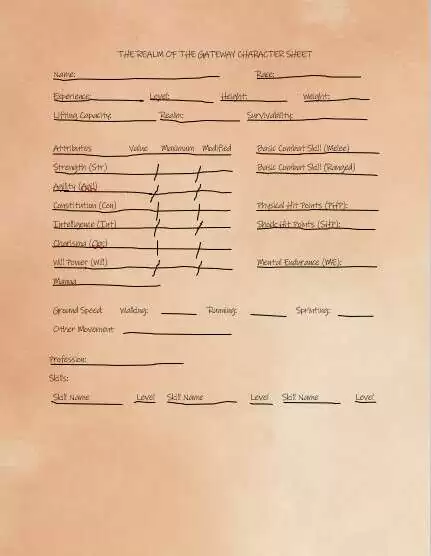 THE REALM OF THE GATEWAY CHARACTER SHEET
Name: Race:
Experience: Level: Height: Weight:
Lifting Capacity: Realm: Survivability:
Attributes Value Maximum Modified Basic Combat Skill (Melee)
Strength (Str) Basic Combat Skill (Ranged)
Agility (Agl)
Constitution (Con) Physical Hit Points (PHP):
Intelligence (Int) Shock Hit Points (SHP):
Charisma
Will Power (Wil) Mental Endurance (ME):
Manna
Ground Speed: Walking: Running: Sprinting:
Other Movement:
Profession:
Skills:
Skill Name Level Skill Name Level Skill Name Level